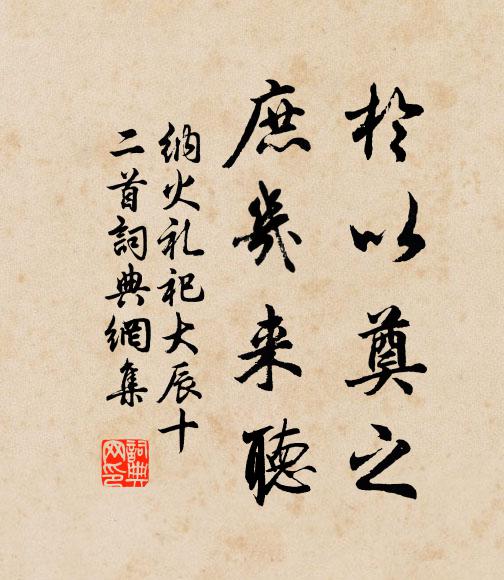 於以奠之
庶幾来聽
纳火礼祀大辰十
二首詞典網集
詞典
网印